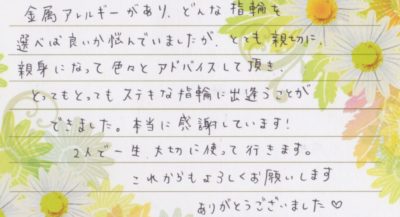 金属アレルギーがあり、どんな指輪を
選べば良いか悩んでいましたが、とても親切に、
親身になって色々とアドバイスして頂き、
とってもとってもステキな指輪に出逢うことが
できました。本当に感謝しています!
2人で一生、大切に使って行きます。
これからもよろしくお願いします
ありがとうございました♡